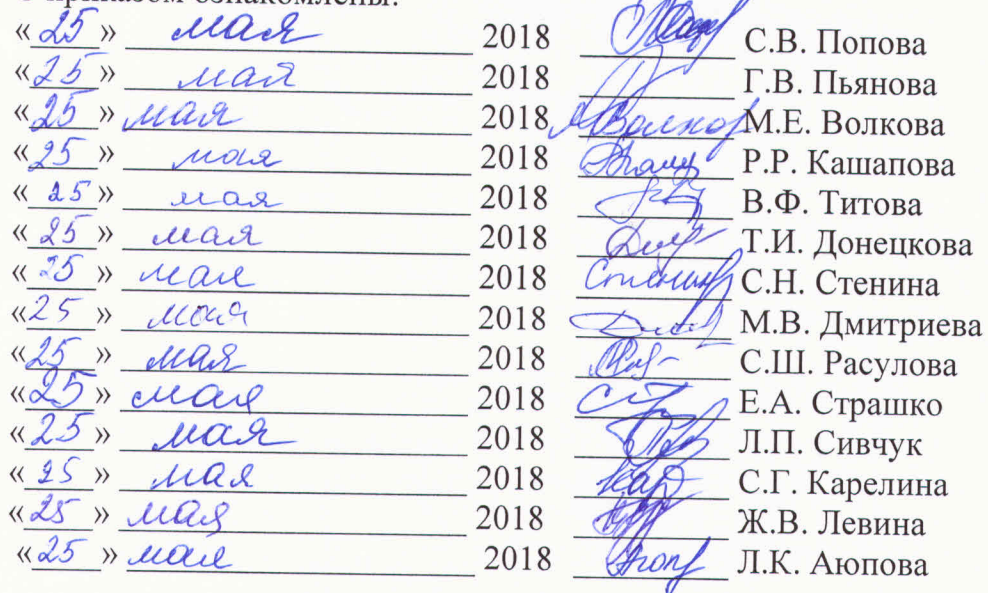 приказом ознакомлены:
«25» мая 2018 С.В. Попова
«25» мая 2018 Г.В. Пьянова
«25» мая 2018 М.Е. Волкова
«25» мая 2018 Р.Р. Кашапова
«25» мая 2018 В.Ф. Титова
«25» мая 2018 Т.И. Донецкова
«25» мая 2018 С.Н. Стенина
«25» мая 2018 М.В. Дмитриева
«25» мая 2018 С.Ш. Расулова
«25» мая 2018 Е.А. Страшко
«25» мая 2018 Л.П. Сивчук
«25» мая 2018 С.Г. Карелина
«25» мая 2018 Ж.В. Левина
«25» мая 2018 Л.К. Аюпова